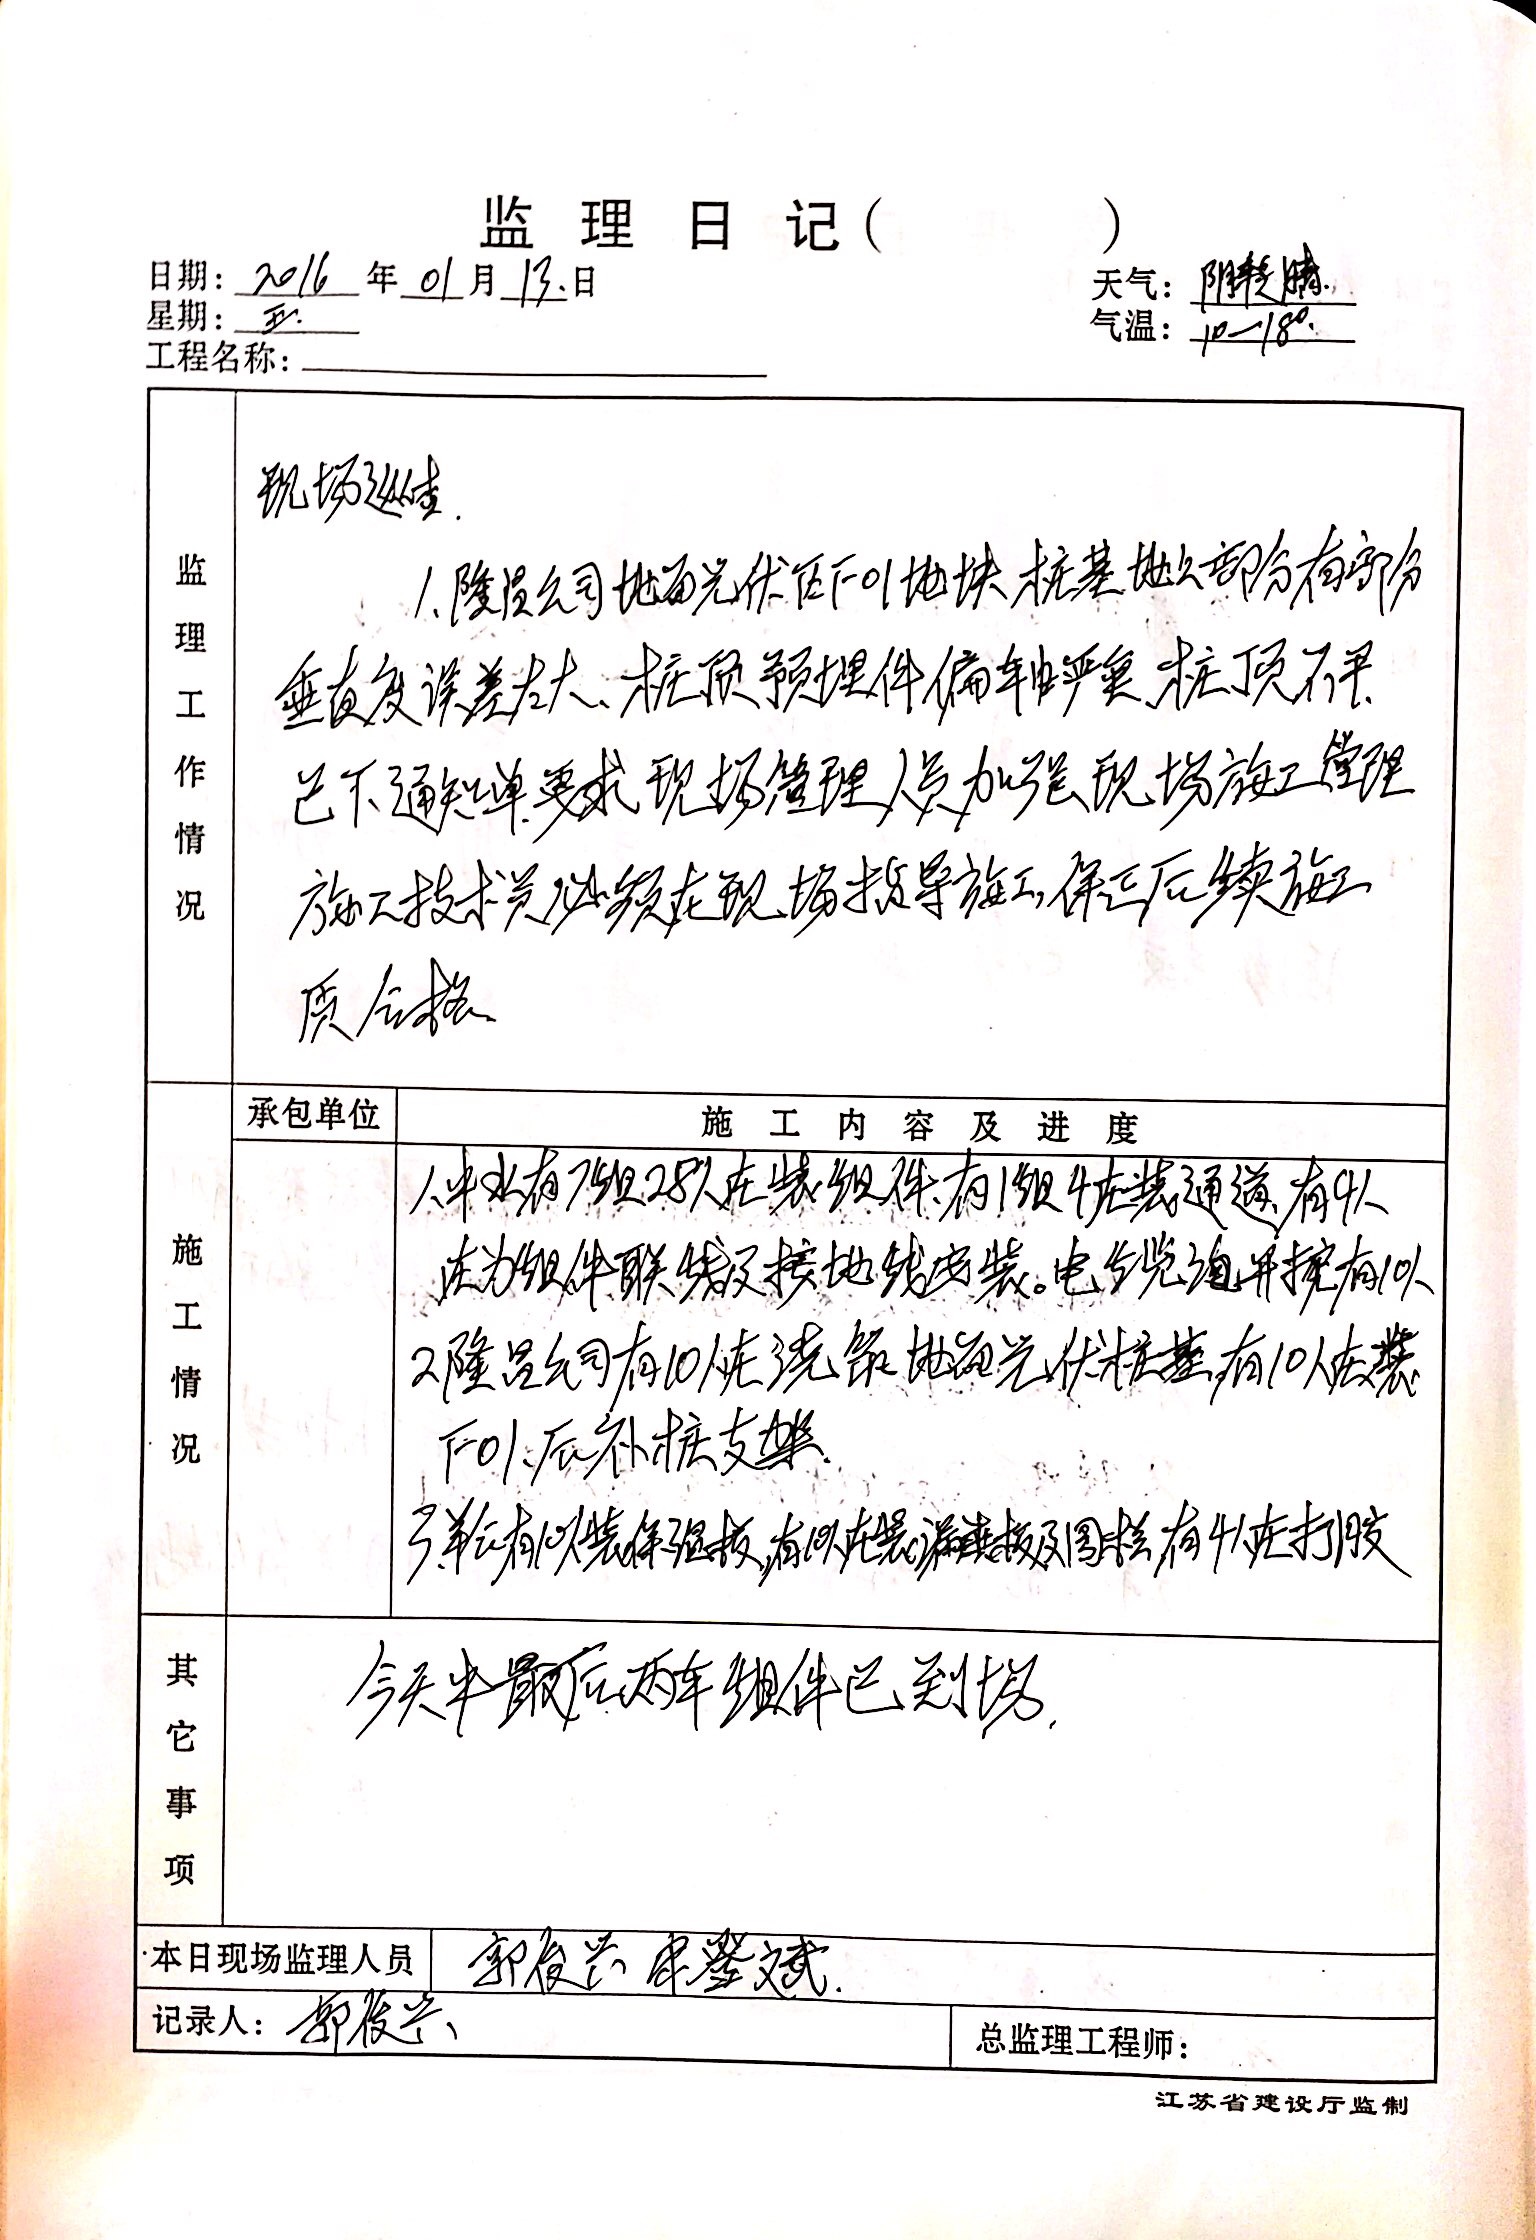 监理日记（　　　）
日期：2016年01月13日
天气：阴转晴.
星期：三.
气温：10—18°.
工程名称：
监理工作情况
现场巡查.
1、隆昌公司地面光伏区F01地块桩基地欠部分有部分
垂直度误差太大、桩顶预埋件偏轴严重、桩顶不平.
已下通知单要求现场管理人员加强现场施工管理
施工技术员必须在现场指导施工,保正后续施工
质合格、
承包单位
施工内容及进度
施工情况
1、中水有7组28人在装组件、有1组4在装通道、有9人
在为组件联线及接地线安装。电缆沟开挖有10人
2隆昌公司有10人在浇筑地面光伏桩基,有10人在装
F01、后补桩支架.
3、有10人装保温板,有10人在装板及围栏,有4人在打胶
其它事项
今天中最后两车组件已到场.
本日现场监理人员
郭俊兴 文斌.
记录人：郭俊兴
总监理工程师：
江苏省建设厅监制